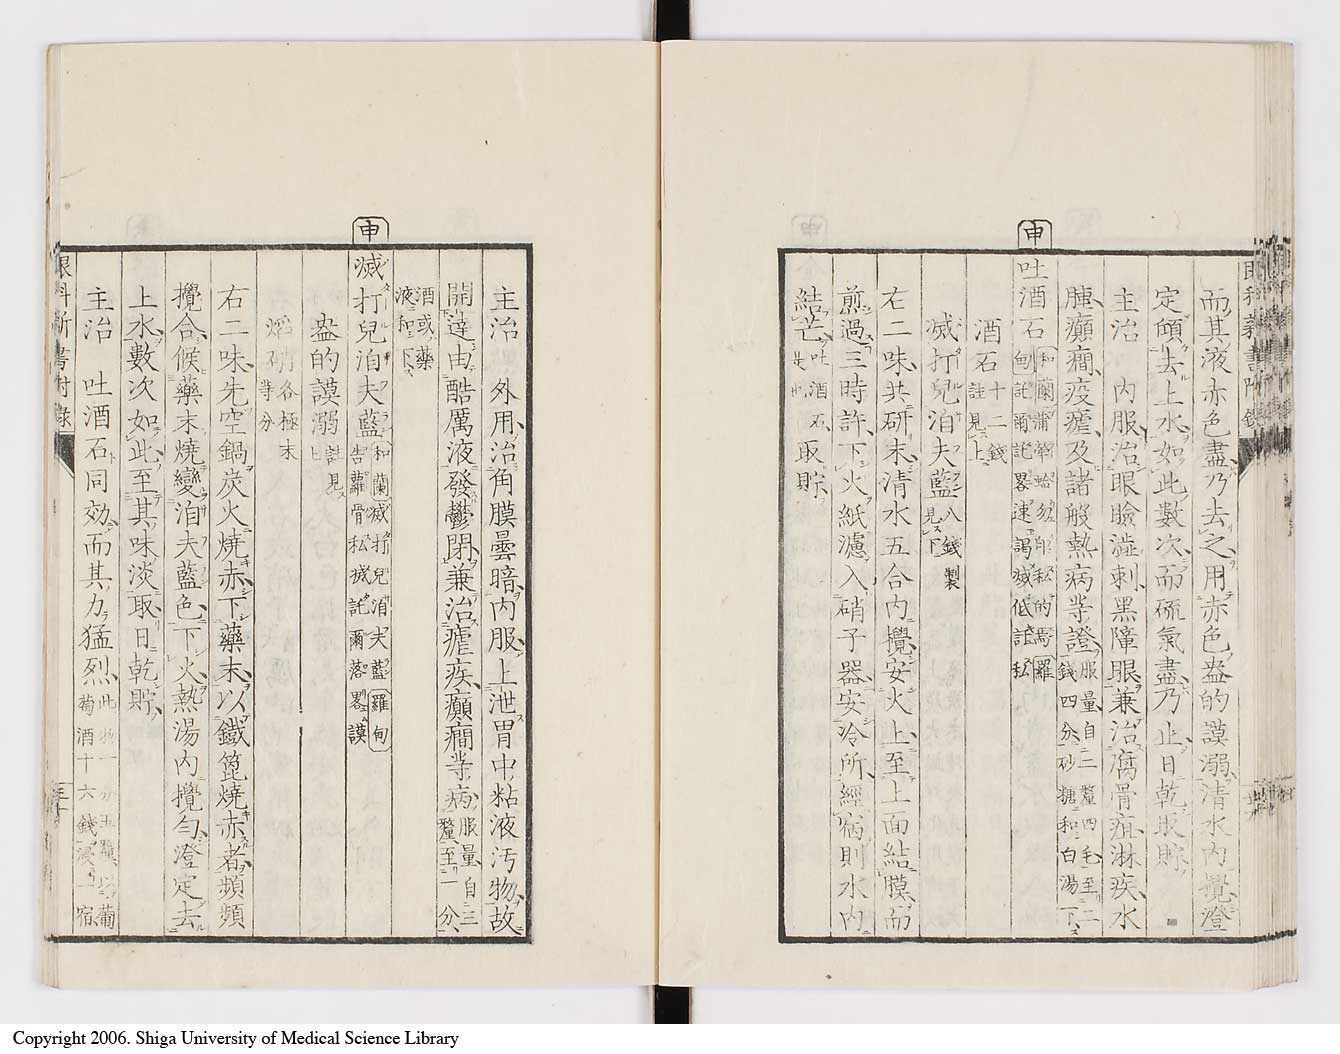 而其液赤色盡乃去之用赤色盎的謨溺清水内攪澄
定傾去上水如此數次而硫氣盡乃止日乾収貯
主治　内服治眼瞼澁刺黑障眼兼治腐骨疽淋疾水
腫癲癇疫瘧及諸般熱病等證服量自二釐四毛至二
錢四分砂糖和白湯下
申
吐酒石
酒石十二錢註見上
滅打兒泊夫藍八錢製見下
右二味共研末清水五合内攪安火上至上面結膜而
煎過三時許下火紙濾入硝子器安冷所經宿則水内
結芒吐酒石是也取貯
主治　外用治角膜曇暗内服上泄胃中粘液汚物故
開達由酷厲液發鬱閉兼治瘧疾癲癇等病服量自三
釐至一分
酒或藥
液和下
申
滅打兒泊夫藍和蘭滅打兒泊夫藍羅甸
盎的謨溺註見上
焰硝各極末等分
右二味先空鍋炭火燒赤下藥末以鐵箆燒赤者頻頻
攪合候藥末燒變泊夫藍色下火熱湯内攪勻澄定去
上水數次如此至其味淡取日乾貯
主治　吐酒石同効而其力猛烈此物一分五釐以葡
萄酒十六錢浸一宿
眼科新書附錄
Copyright 2006. Shiga University of Medical Science Library